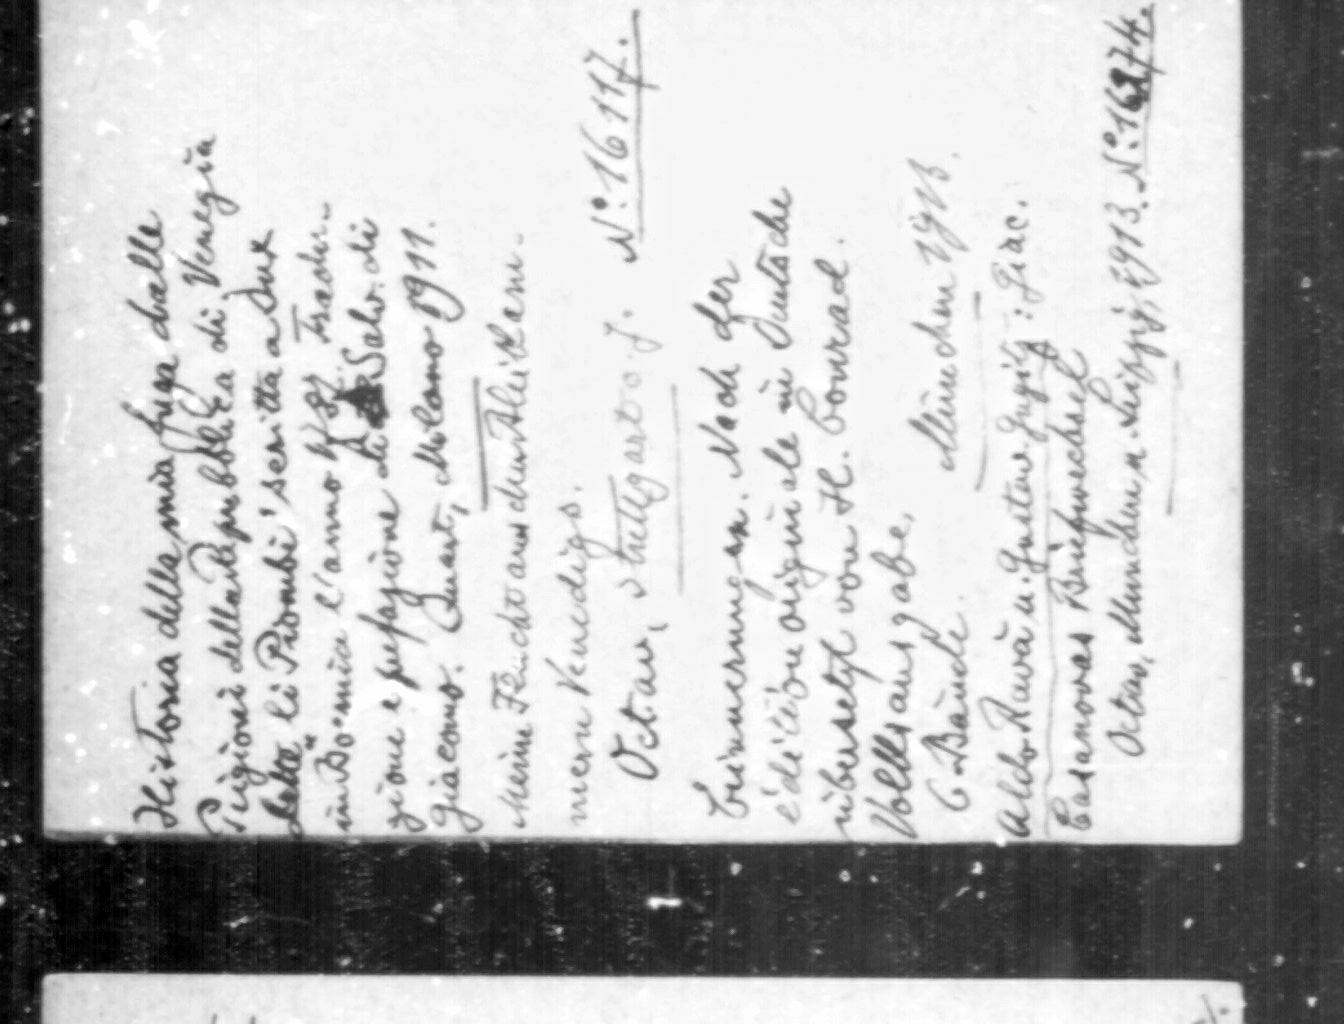 Historia della mia fuga dalle
Prigioni della Repubblica di Venezia
dette li Piombi' scritta a Dux
in Boemia l'anno 1787. Tradu-
zione e prefazione di Salv. di
Giacomo. Quart, Milano 1911.
Meine Flucht aus den Bleikam-
mern Venedigs.
Octav, Stuttgart o. J. No. 16117.
Erinnerungen. Nach der
édition originale ins Deutsche
übersetzt von H. Conrad.
Volksausgabe.
6 Bände. München 1913.
Aldo Ravà u. Gustav Gugitz: Giac.
Casanovas Briefwechsel
Octav, München u. Leipzig, 1913. No. 16274.